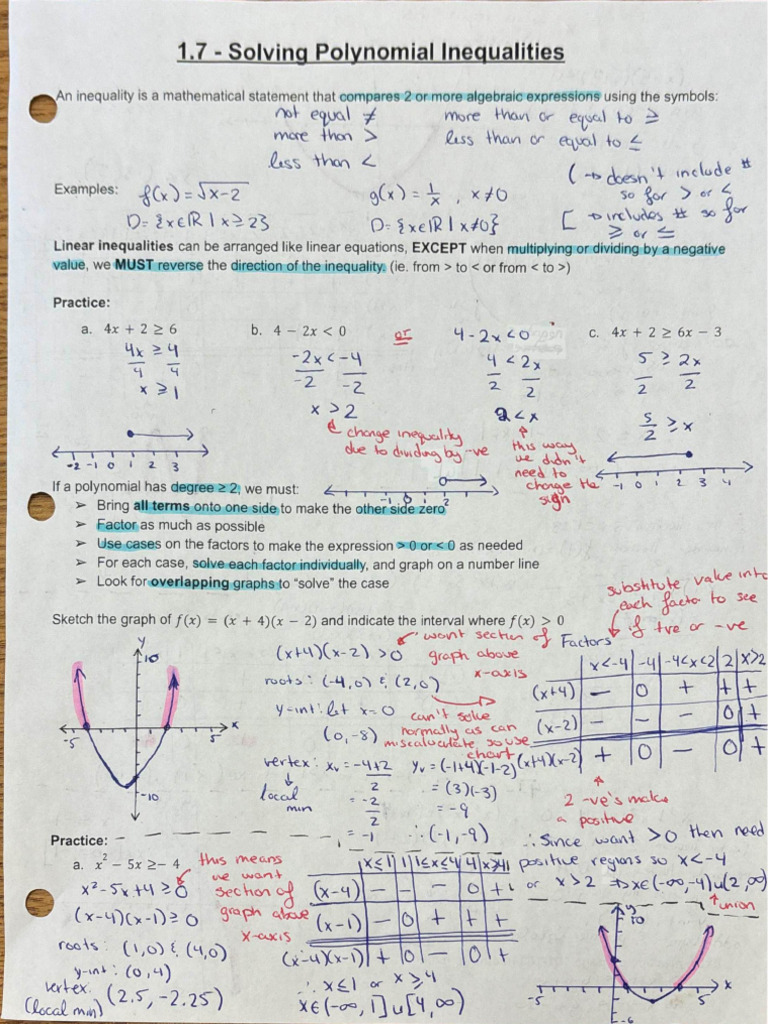 1.7 - Solving Polynomial Inequalities
An inequality is a mathematical statement that compares 2 or more algebraic expressions using the symbols:
not equal ≠ more than or equal to ≥
more than > less than or equal to ≤
less than <
( → doesn't include #
so for > or <
[ → includes # so for
≥ or ≤
Examples: f(x) = √x-2 g(x) = 1/x , x≠0
D= {x∈ℝ | x ≥ 2} D= {x∈ℝ | x≠0}
Linear inequalities can be arranged like linear equations, EXCEPT when multiplying or dividing by a negative
value, we MUST reverse the direction of the inequality. (ie. from > to < or from < to >)
Practice:
a. 4x + 2 ≥ 6
4x ≥ 4
4 4
x ≥ 1
-2 -1 0 1 2 3
b. 4 − 2x < 0
-2x < -4
-2 -2
x > 2
change inequality
due to dividing by -ve
-1 0 2
or
4 - 2x < 0
4 < 2x
2 2
2 < x
this way
we didn't
need to
change the
sign
c. 4x + 2 ≥ 6x − 3
5 ≥ 2x
2 2
5/2 ≥ x
-1 0 1 2 3 4
If a polynomial has degree ≥ 2, we must:
➢ Bring all terms onto one side to make the other side zero
➢ Factor as much as possible
➢ Use cases on the factors to make the expression > 0 or < 0 as needed
➢ For each case, solve each factor individually, and graph on a number line
➢ Look for overlapping graphs to "solve" the case
Sketch the graph of f(x) = (x + 4)(x − 2) and indicate the interval where f(x) > 0
substitute value into
each factor to see
if +ve or -ve
y
10
-5 5 x
-10
(x+4)(x-2) > 0
want section of
graph above
x-axis
roots: (-4,0) & (2,0)
y-int: let x=0
(0,-8)
can't solve
normally as can
miscalculate so use
chart
vertex: xᵥ = -4+2
2
= -2
2
= -1
local
min
yᵥ = (-1+4)(-1-2)
= (3)(-3)
= -9
∴ (-1,-9)
Factors
x<-4 | -4 | -4<x<2 | 2 | x>2
(x+4) − | 0 | + | + | +
(x-2) − | − | − | 0 | +
(x+4)(x-2) + | 0 | − | 0 | +
2 -ve's make
a positive
∴ Since want > 0 then need
positive regions so x<-4
or x>2 ⇒ x∈(-∞,-4)∪(2,∞)
union
Practice:
a. x² − 5x ≥ − 4
x² - 5x + 4 ≥ 0
(x-4)(x-1) ≥ 0
this means
we want
section of
graph above
x-axis
roots: (1,0) & (4,0)
y-int: (0,4)
vertex: (2.5, -2.25)
(local min)
x≤1 | 1 | 1≤x≤4 | 4 | x≥4
(x-4) − | − | − | 0 | +
(x-1) − | 0 | + | + | +
(x-4)(x-1) + | 0 | − | 0 | +
∴ x≤1 or x≥4
x∈(-∞,1]∪[4,∞)
y
10
-5 5 x
-6